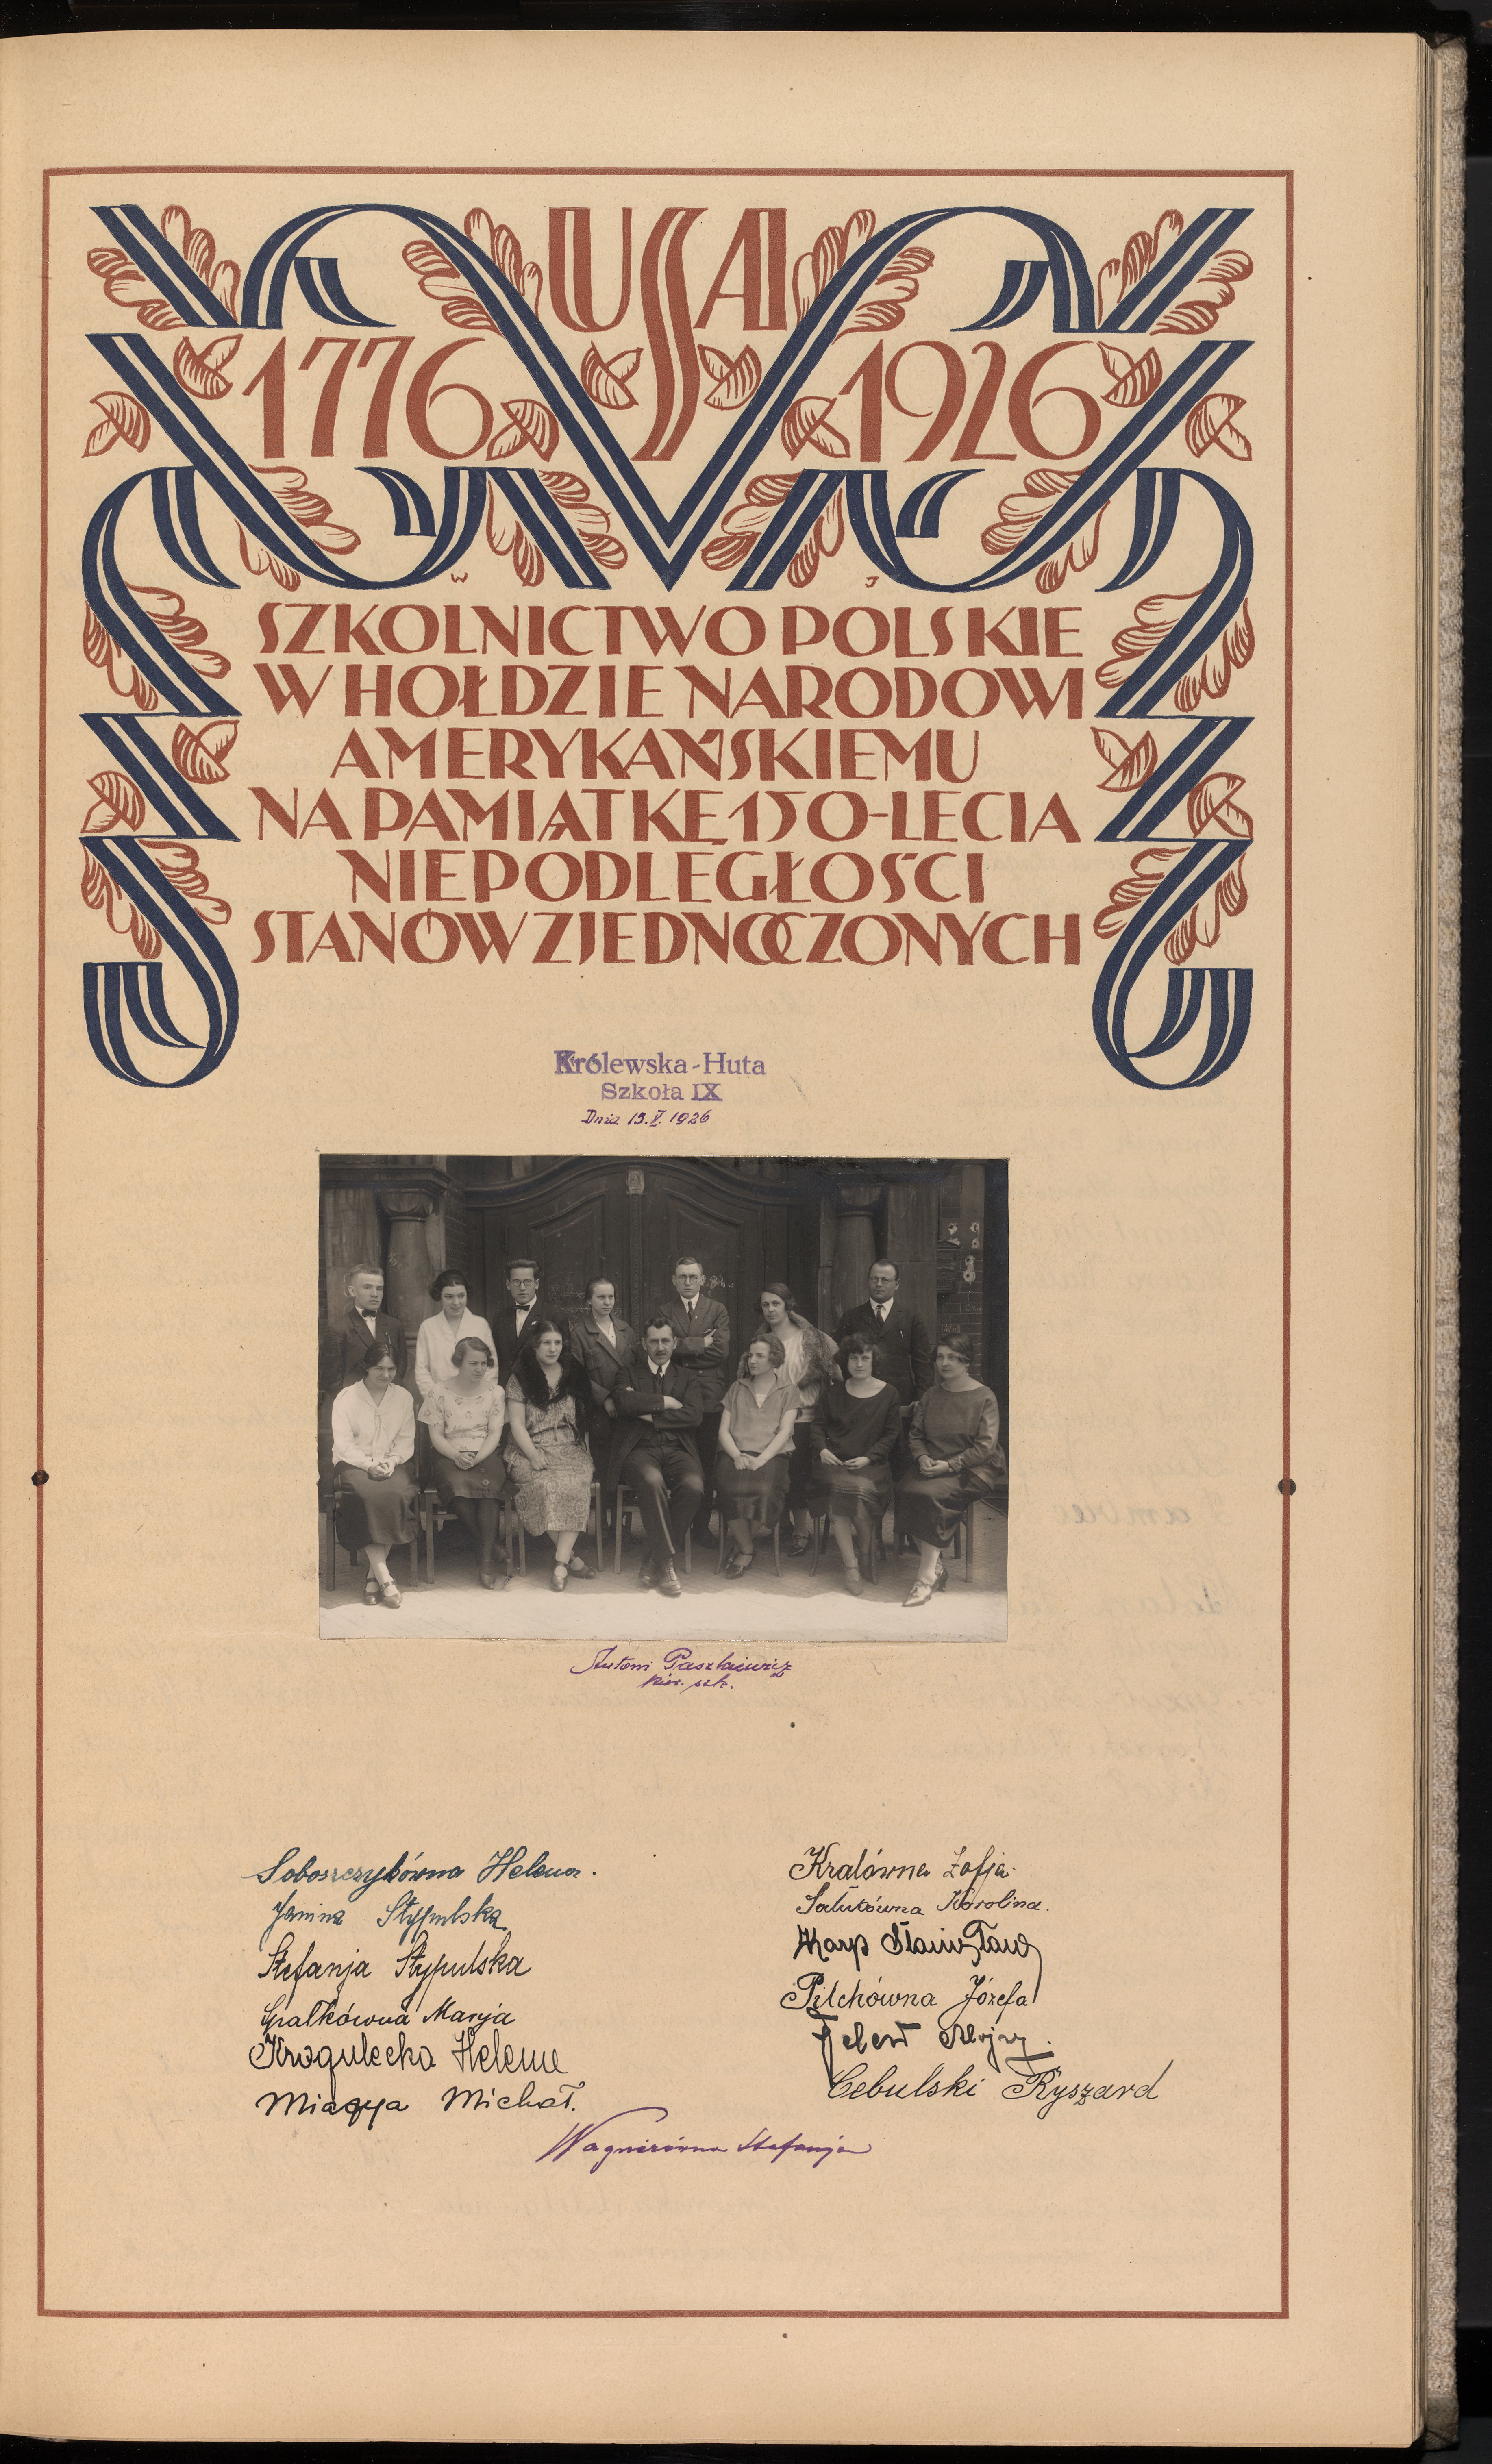 USA
1776 1926
W J
SZKOLNICTWO POLSKIE
W HOŁDZIE NARODOWI
AMERYKAŃSKIEMU
NA PAMIĄTKĘ 150-LECIA
NIEPODLEGŁOŚCI
STANÓW ZJEDNOCZONYCH
Królewska-Huta
Szkoła IX
Dnia 15.V. 1926
Antoni Paszkiewicz
kier. szk.
Soboszczykówna Helena.
Janina Stypulska
Stefanja Stypulska
Gralkówna Marja
Kragulecka Helena
Miącya Michał.
Kralówna Zofja.
Salutówna Karolina.
Karp Stanisław
Pilchówna Józefa
Alojzy.
Cebulski Ryszard
Wagnerówna Stefanja